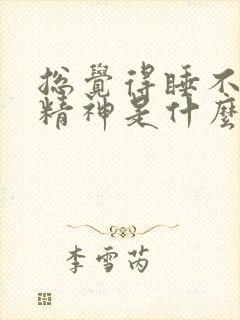 總覺得睡不
精神是什麼
李雪芮